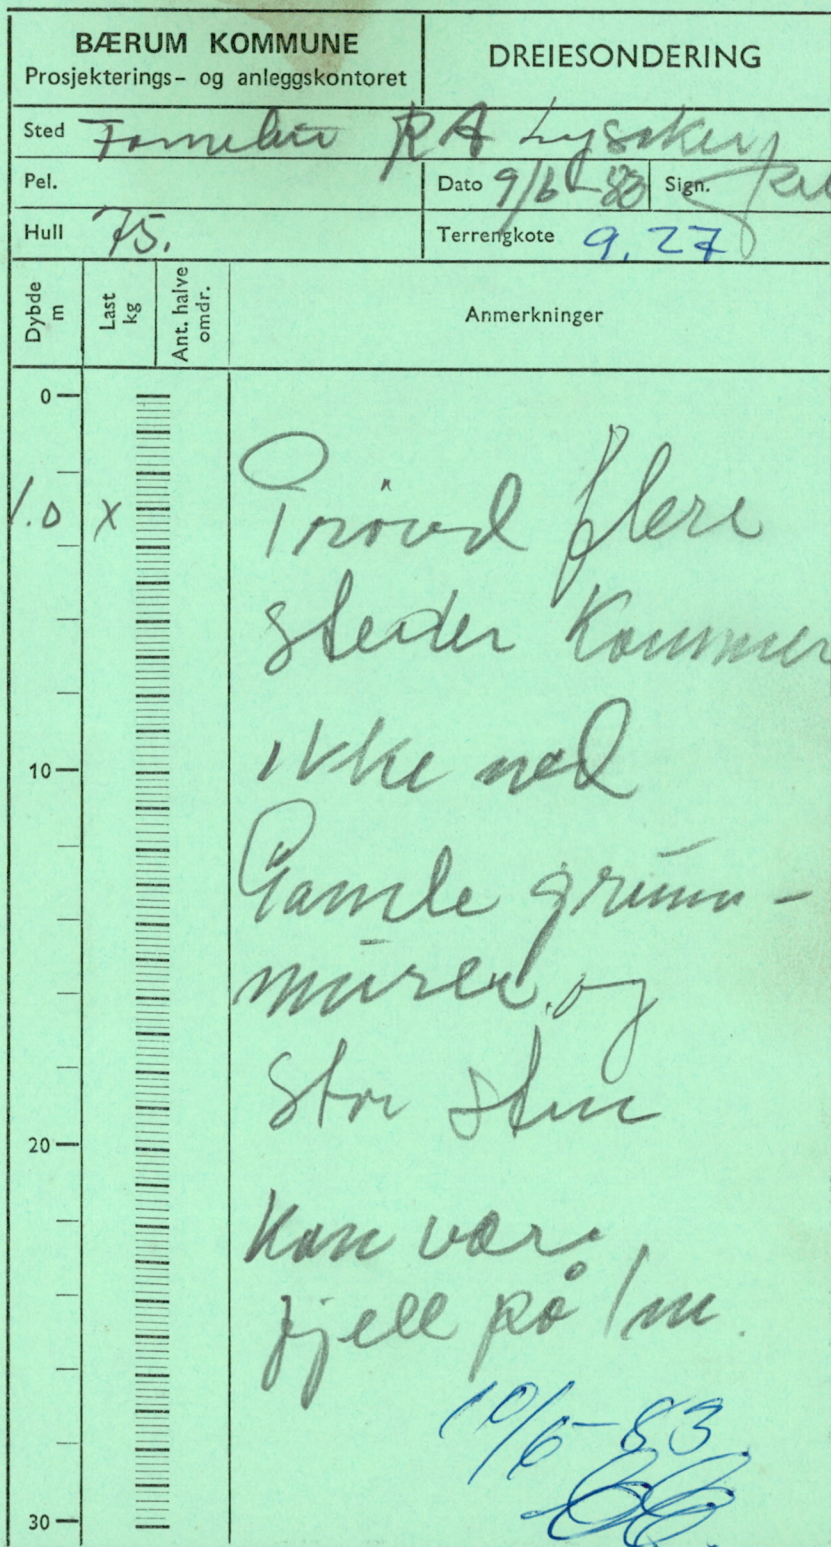 BÆRUM KOMMUNE
Prosjekterings- og anleggskontoret
DREIESONDERING
Sted RA Lysaker
Pel.
Dato 9/6-83
Sign.
Hull 75.
Terrengkote 9.27
Dybde m
Last kg
Ant. halve omdr.
Anmerkninger
0
1.0 x
Prøvd flere
steder Kommer
ikke ned
Gamle grunn-
murer og
stor sten
10
20
Kan være
fjell på 1m.
10/6-83
30